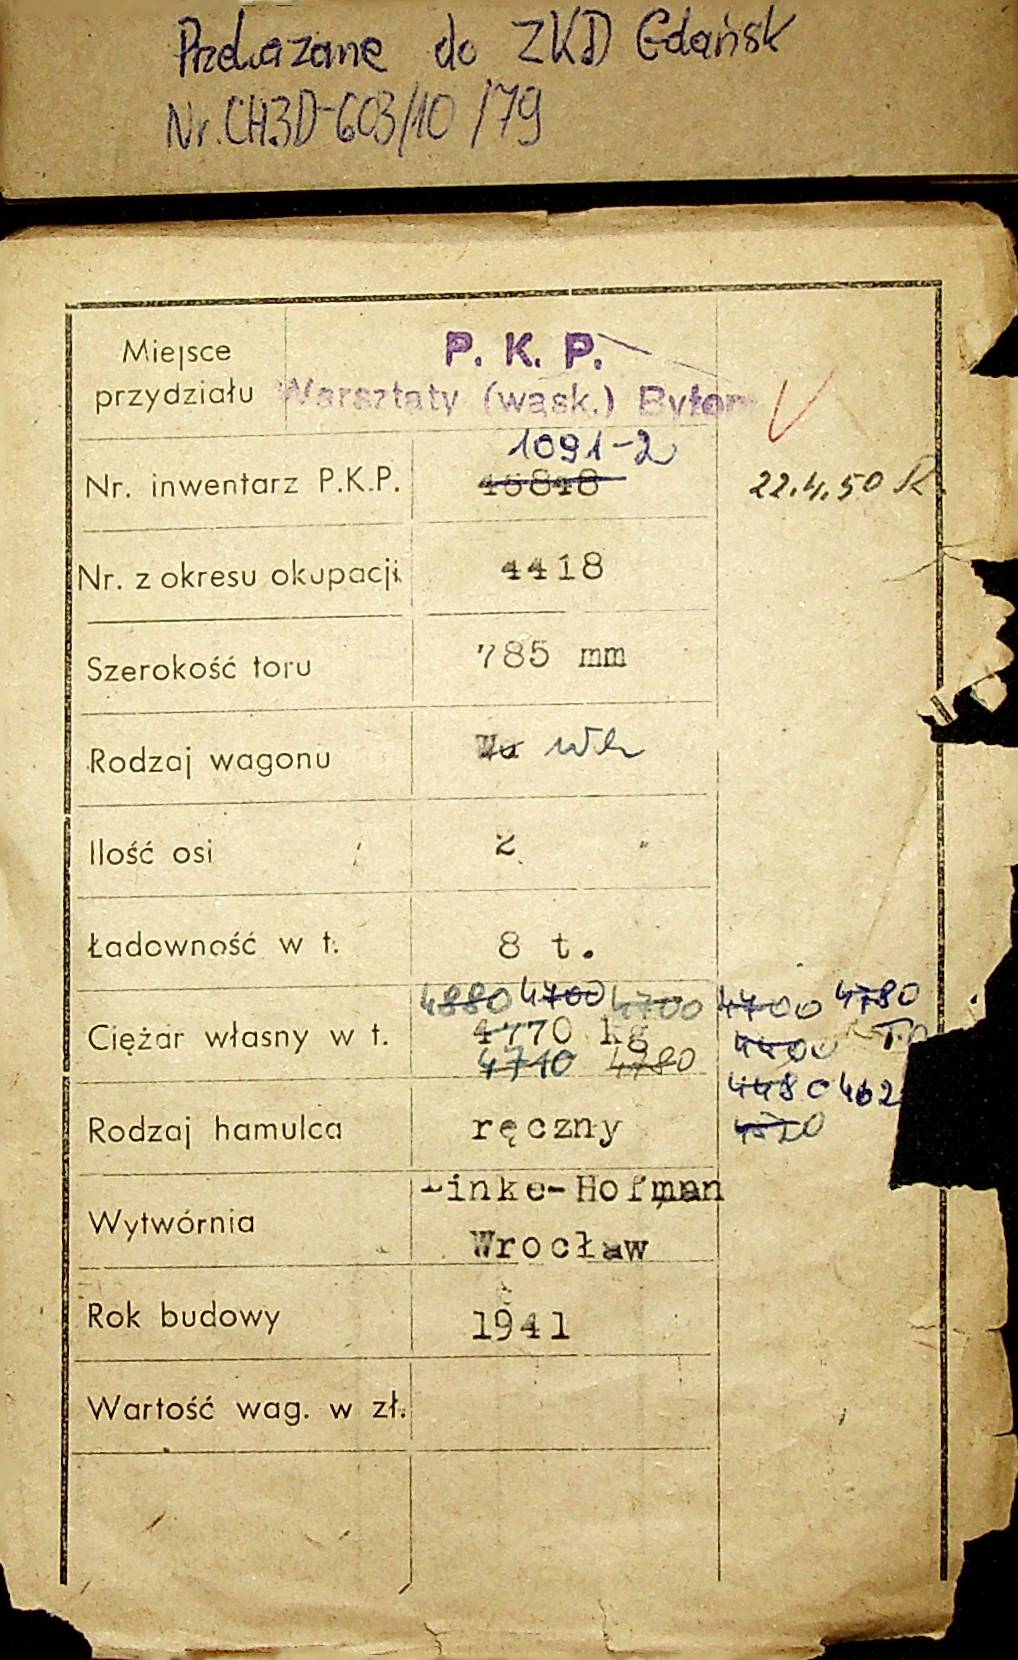 Przekazane do ZKD Gdańsk
Nr. CH3D-603/10/79
Miejsce przydziału
P. K. P.
Warsztaty (wąsk.) Bytom
1091-2
Nr. inwentarz P.K.P. 15848
22.4.50
Nr. z okresu okupacji 4418
Szerokość toru 785 mm
Rodzaj wagonu Wu
Ilość osi 2
Ładowność w t. 8 t.
4880 4700 4700 4700 4780
Ciężar własny w t. 4770 kg 4400
4710 4780 4480 462
Rodzaj hamulca ręczny 4520
Wytwórnia Linke-Hofman
Wrocław
Rok budowy 1941
Wartość wag. w zł.